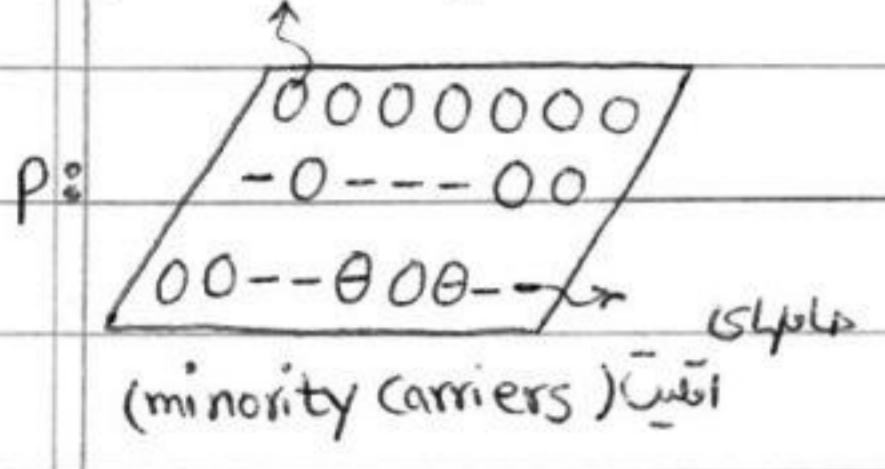 P:
0000000
-0---00
00--θ0θ--
حاملهای
اقلیت (minority carriers)